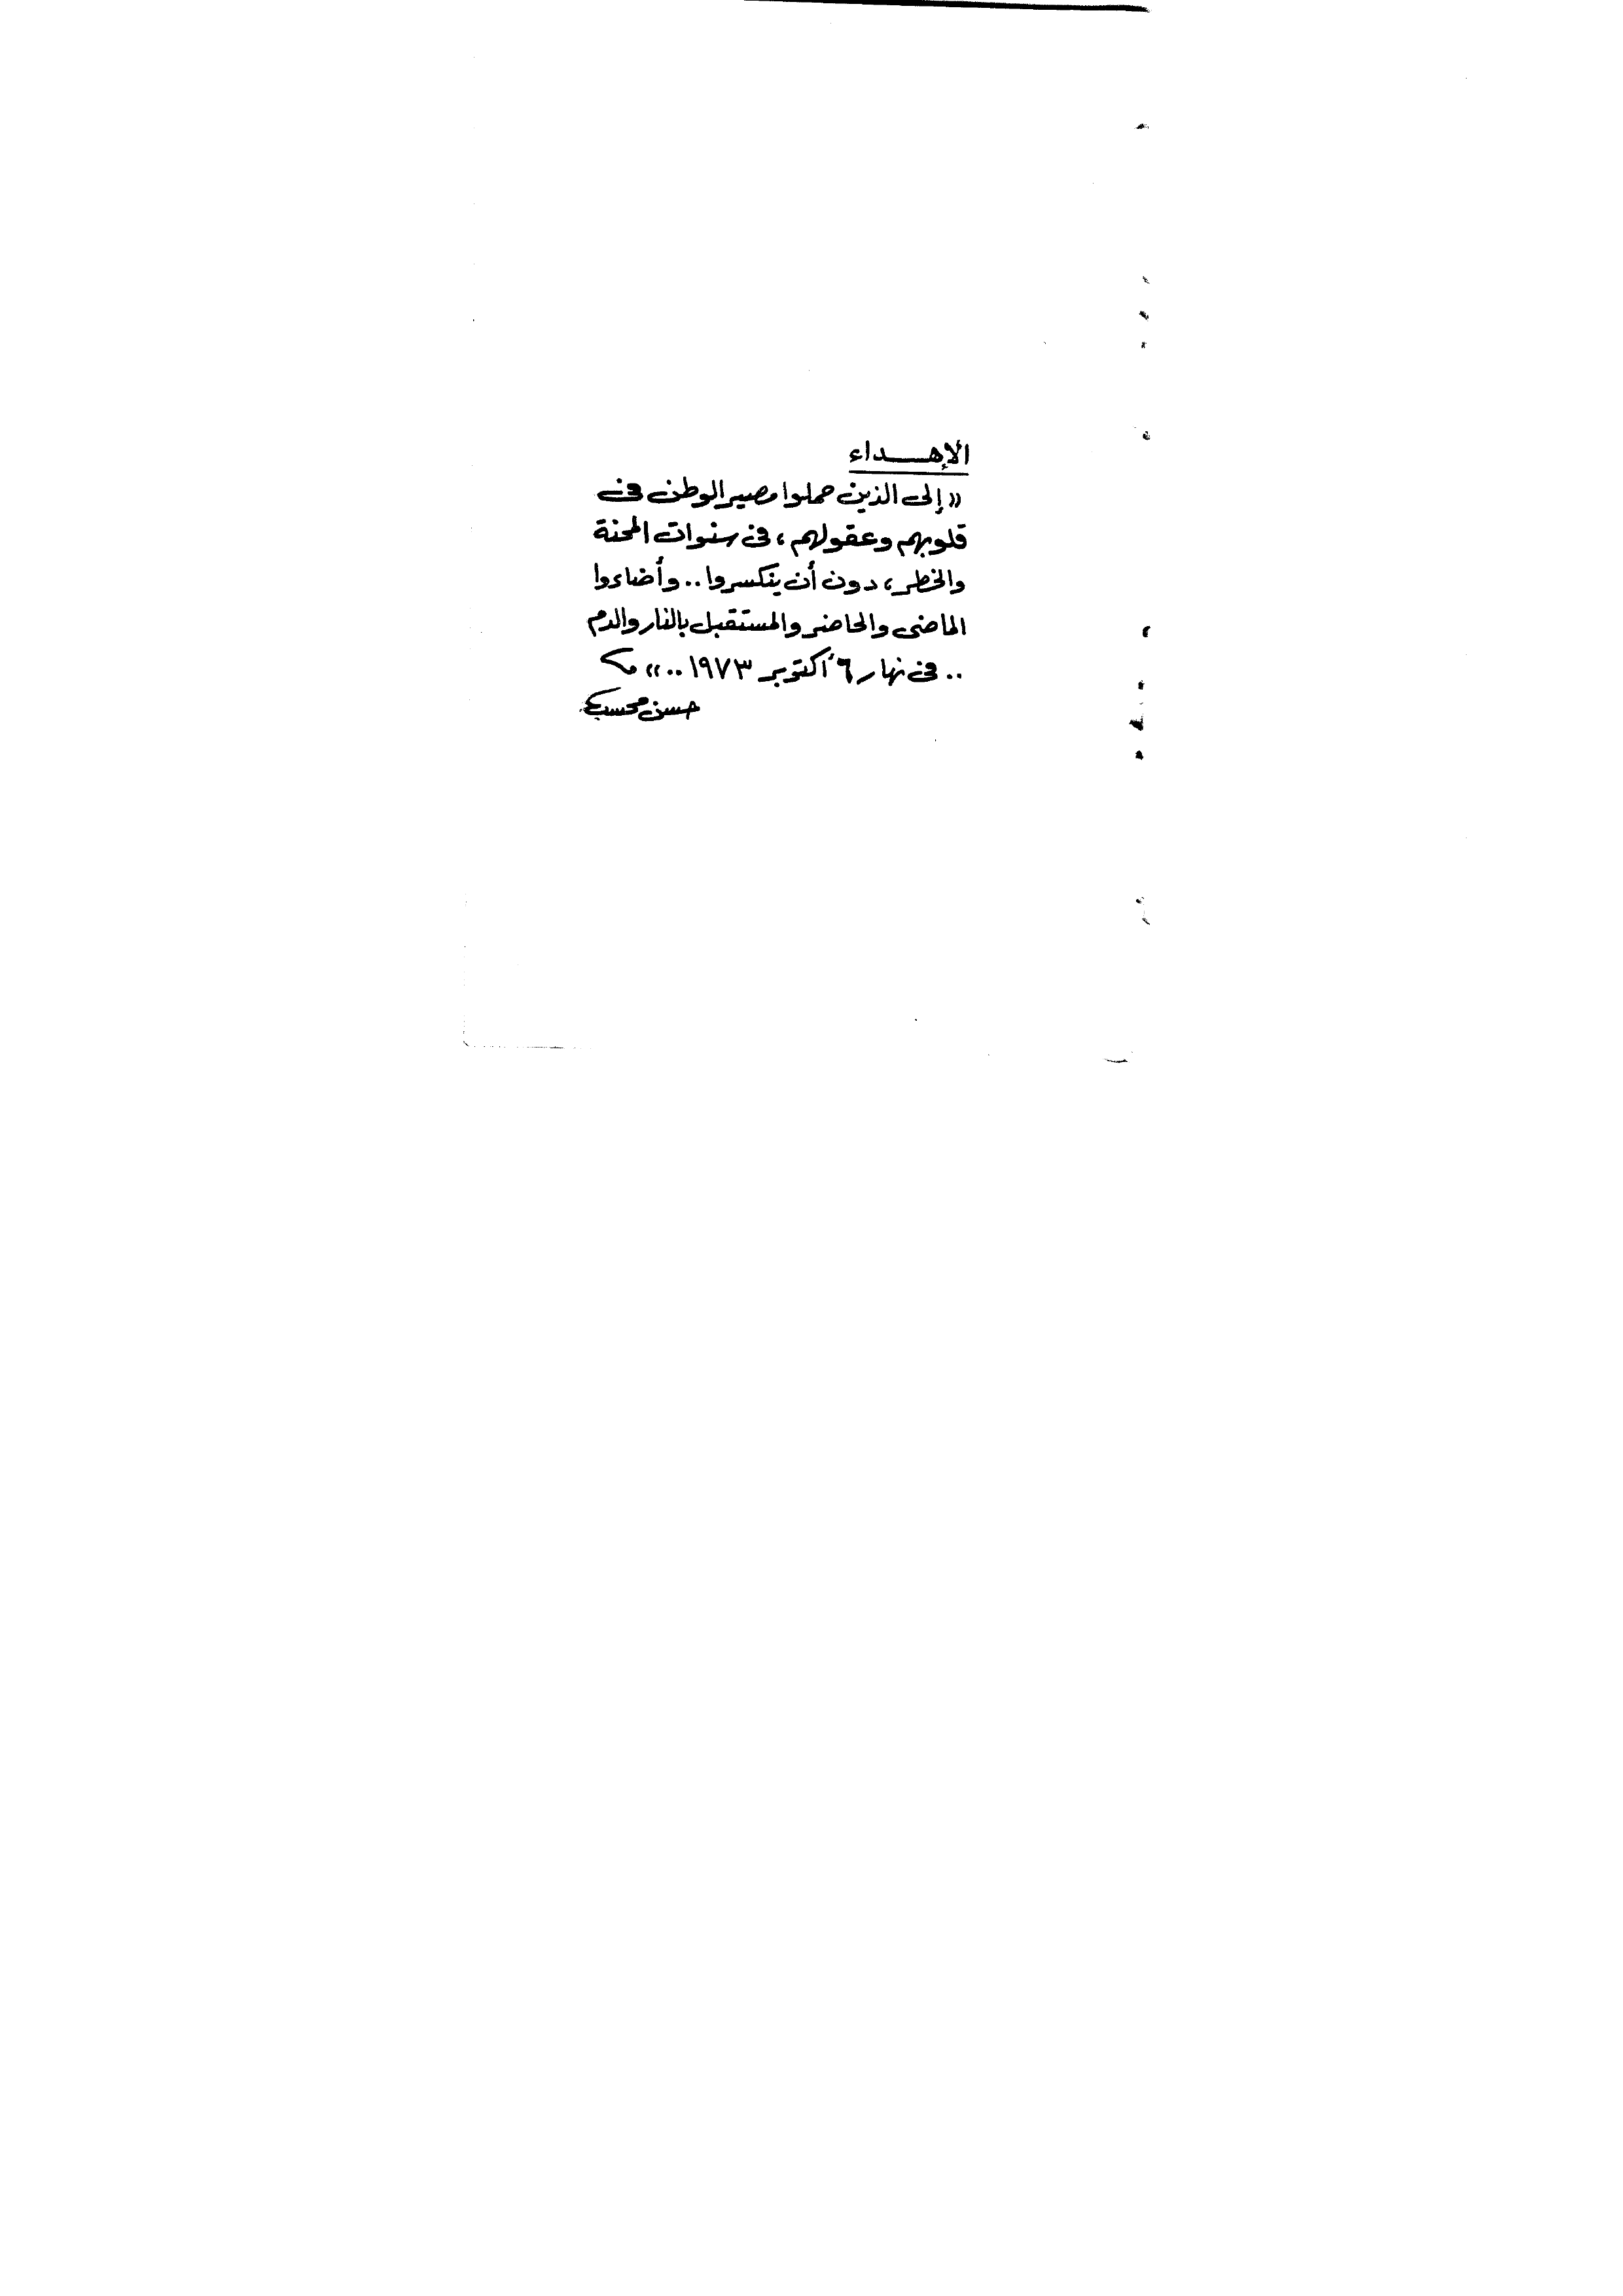 الإهـــداء
« إلى الذين حملوا مصير الوطن فى
قلوبهم وعقولهم ، فى سنوات المحنة
والخطر ، دون أن ينكسروا .. وأضاءوا
الماضى والحاضر والمستقبل بالنار والدم
.. فى نهار ٦ أكتوبر ١٩٧٣ .. »
حسن محسب